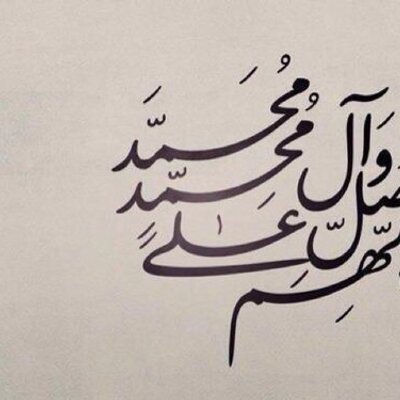 لّهم صَلّ عَلىٰ مُحَمَّدٍ وَآل مُحَمَّد